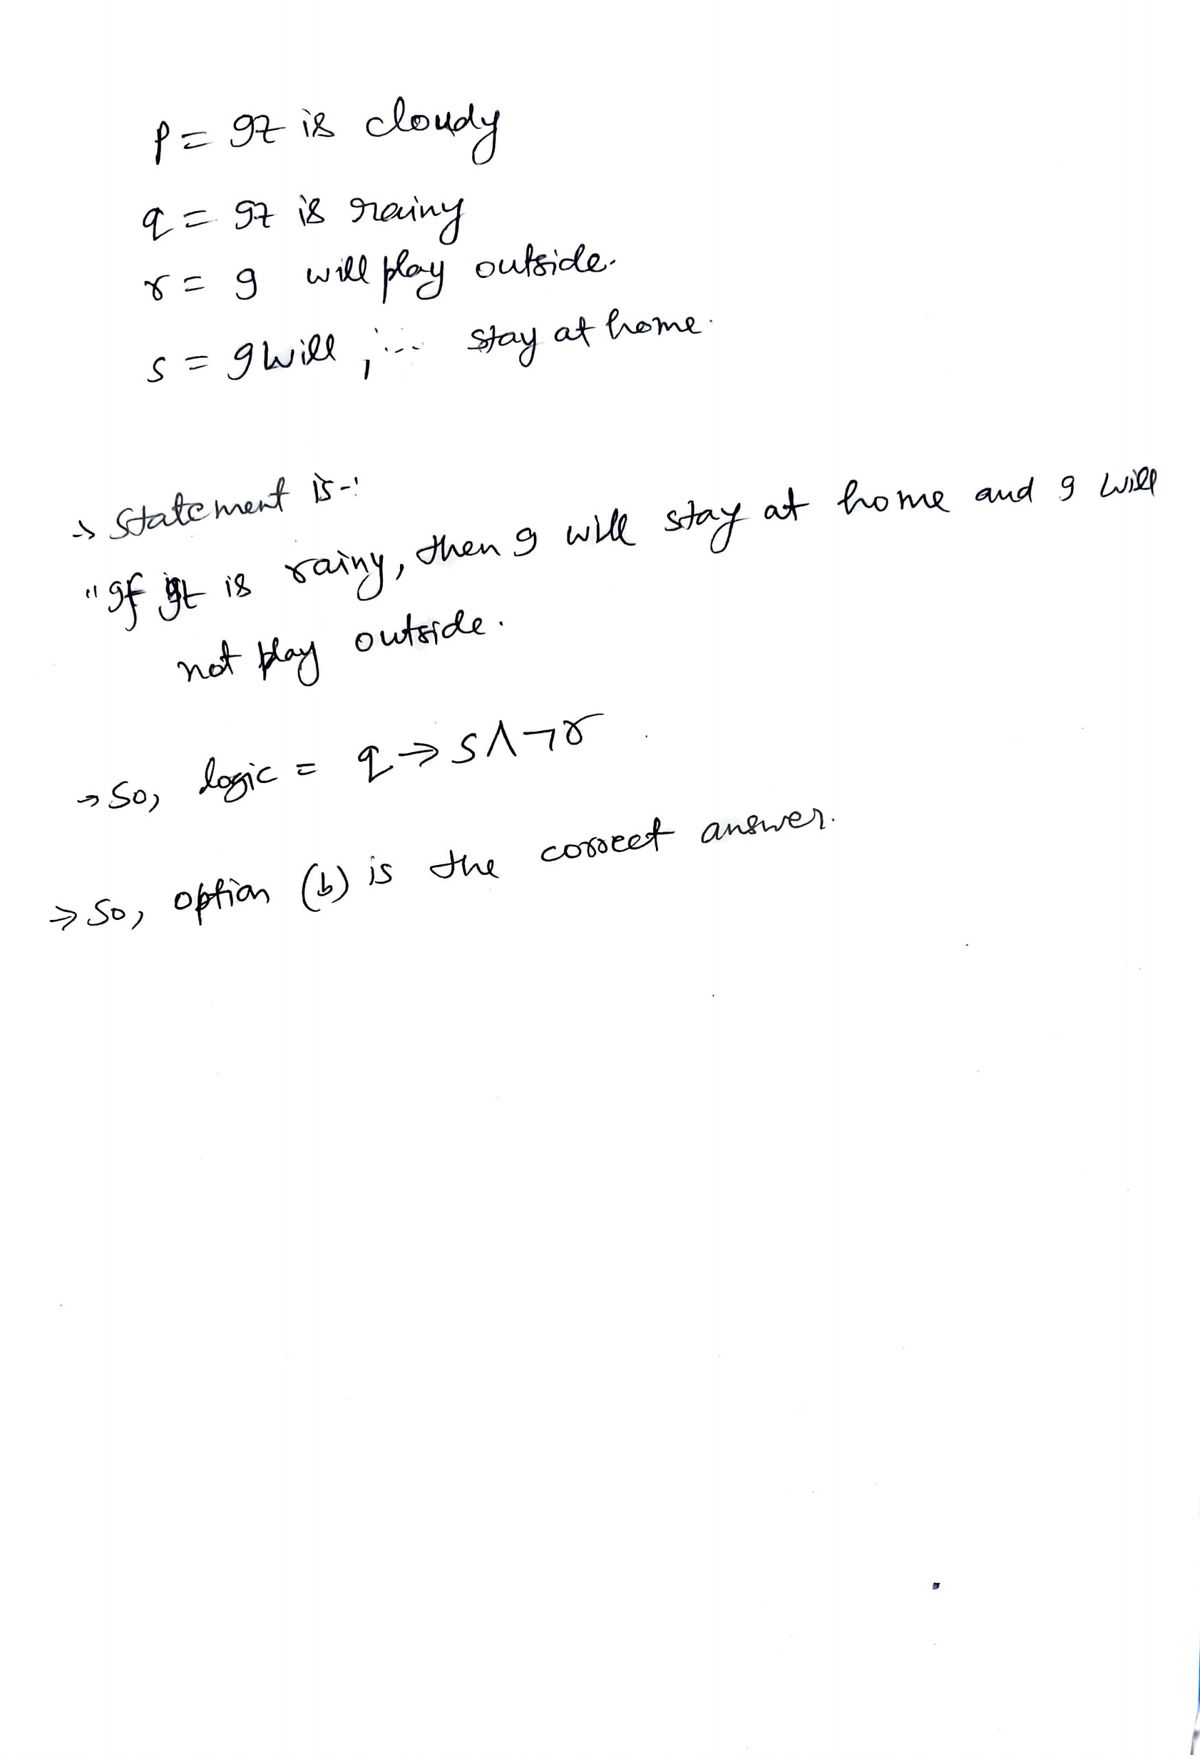 p = It is cloudy
q = It is rainy
r = I will play outside.
s = I will stay at home.
→ Statement is -:
"If it is rainy, then I will stay at home and I will
not play outside.
→ So, logic = q → s ∧ ¬r
→ So, option (b) is the correct answer.